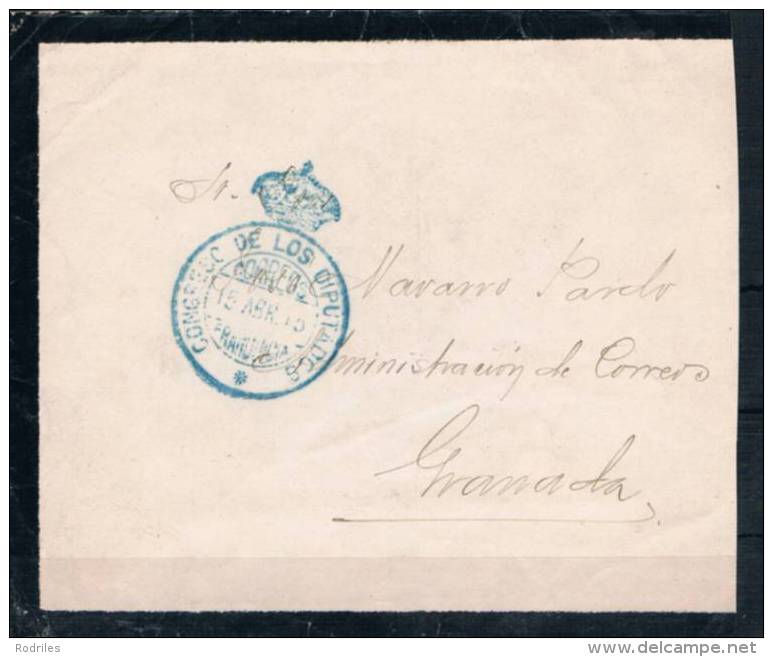 Sr.
CONGRESO DE LOS DIPUTADOS
CORREOS
15 ABR. 15
FRANQUICIA
Navarro Pardo
Administración de Correos
Granada
Rodriles
www.delcampe.net